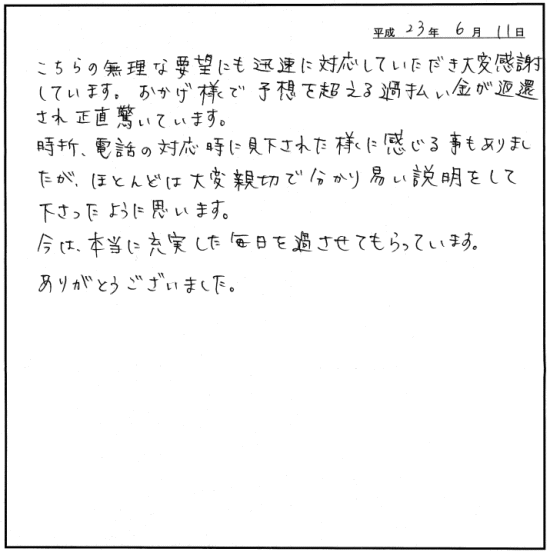 平成 23年 6月 11日
こちらの無理な要望にも迅速に対応していただき大変感謝
しています。おかげ様で予想を超える過払い金が返還
され正直驚いています。
時折、電話の対応時に見下された様に感じる事もありまし
たが、ほとんどは大変親切で分かり易い説明をして
下さったように思います。
今は、本当に充実した毎日を過させてもらっています。
ありがとうございました。